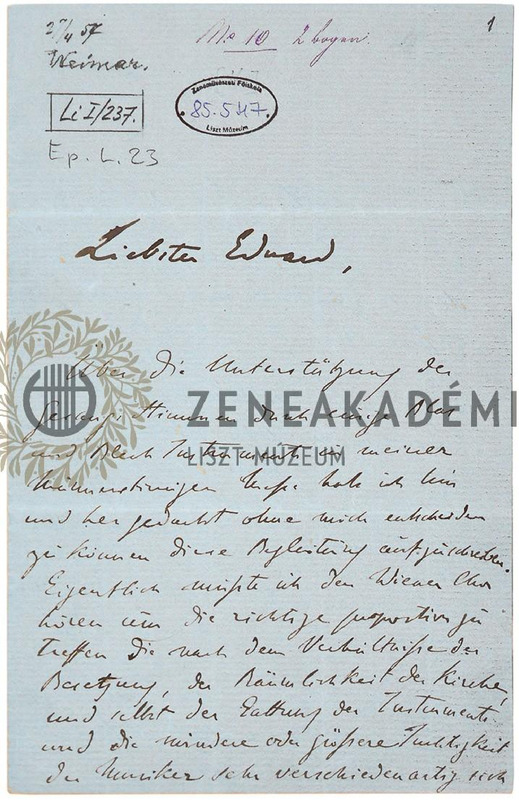 27/4 57
Weimar.
No 10 2 bogen.
1
Li I/237.
Zeneművészeti Főiskola
85.547.
Liszt Múzeum
Ep. L. 23
Liebster Eduard,
Über die Unterstützung der
Gesangstimmen durch einige Blas
und Blech Instrumente in meiner
Männerstimmigen Messe hab ich hin
und her gedacht ohne mich entscheiden
zu können diese Begleitung aufzuschreiben.
Eigentlich müsste ich den Wiener Chor
hören um die richtige proportion zu
treffen die nach dem Verhältnisse der
Besetzung, der Räumlichkeit der Kirche,
und selbst der Gattung der Instrumente
und die mindere oder größere Tüchtigkeit
der Musiker sehr verschiedenartig sich
ZENEAKADÉMI
LISZT MÚZEUM